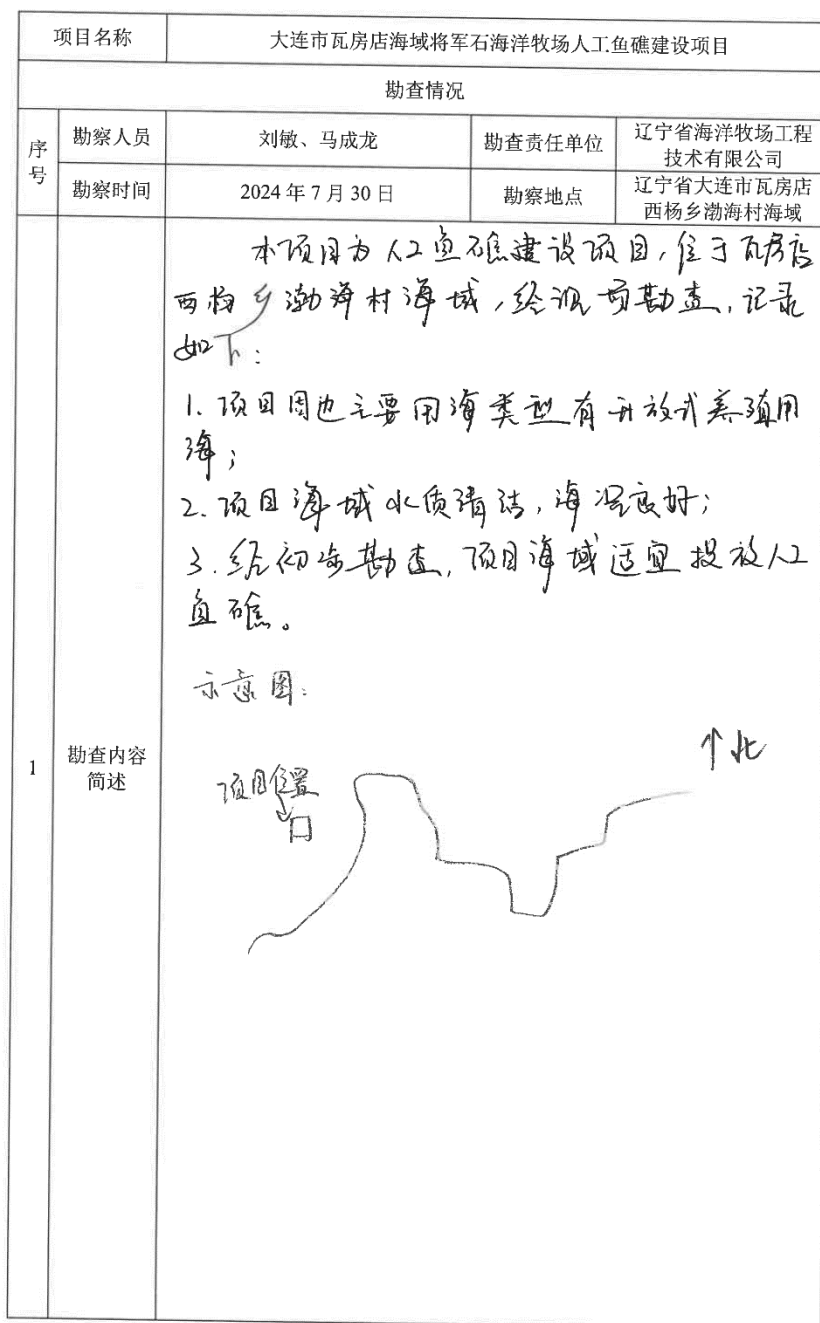 项目名称
大连市瓦房店海域将军石海洋牧场人工鱼礁建设项目
勘查情况
序号
勘察人员
刘敏、马成龙
勘查责任单位
辽宁省海洋牧场工程
技术有限公司
勘察时间
2024年7月30日
勘察地点
辽宁省大连市瓦房店
西杨乡渤海村海域
1
勘查内容
简述
本项目为人工鱼礁建设项目,位于瓦房店
西杨乡渤海村海域,经现场勘查,记录
如下:
1. 项目周边主要用海类型有开放式养殖用
海;
2. 项目海域水质清洁,海况良好;
3. 经初步勘查,项目海域适宜投放人工
鱼礁。
示意图:
↑北
项目位置